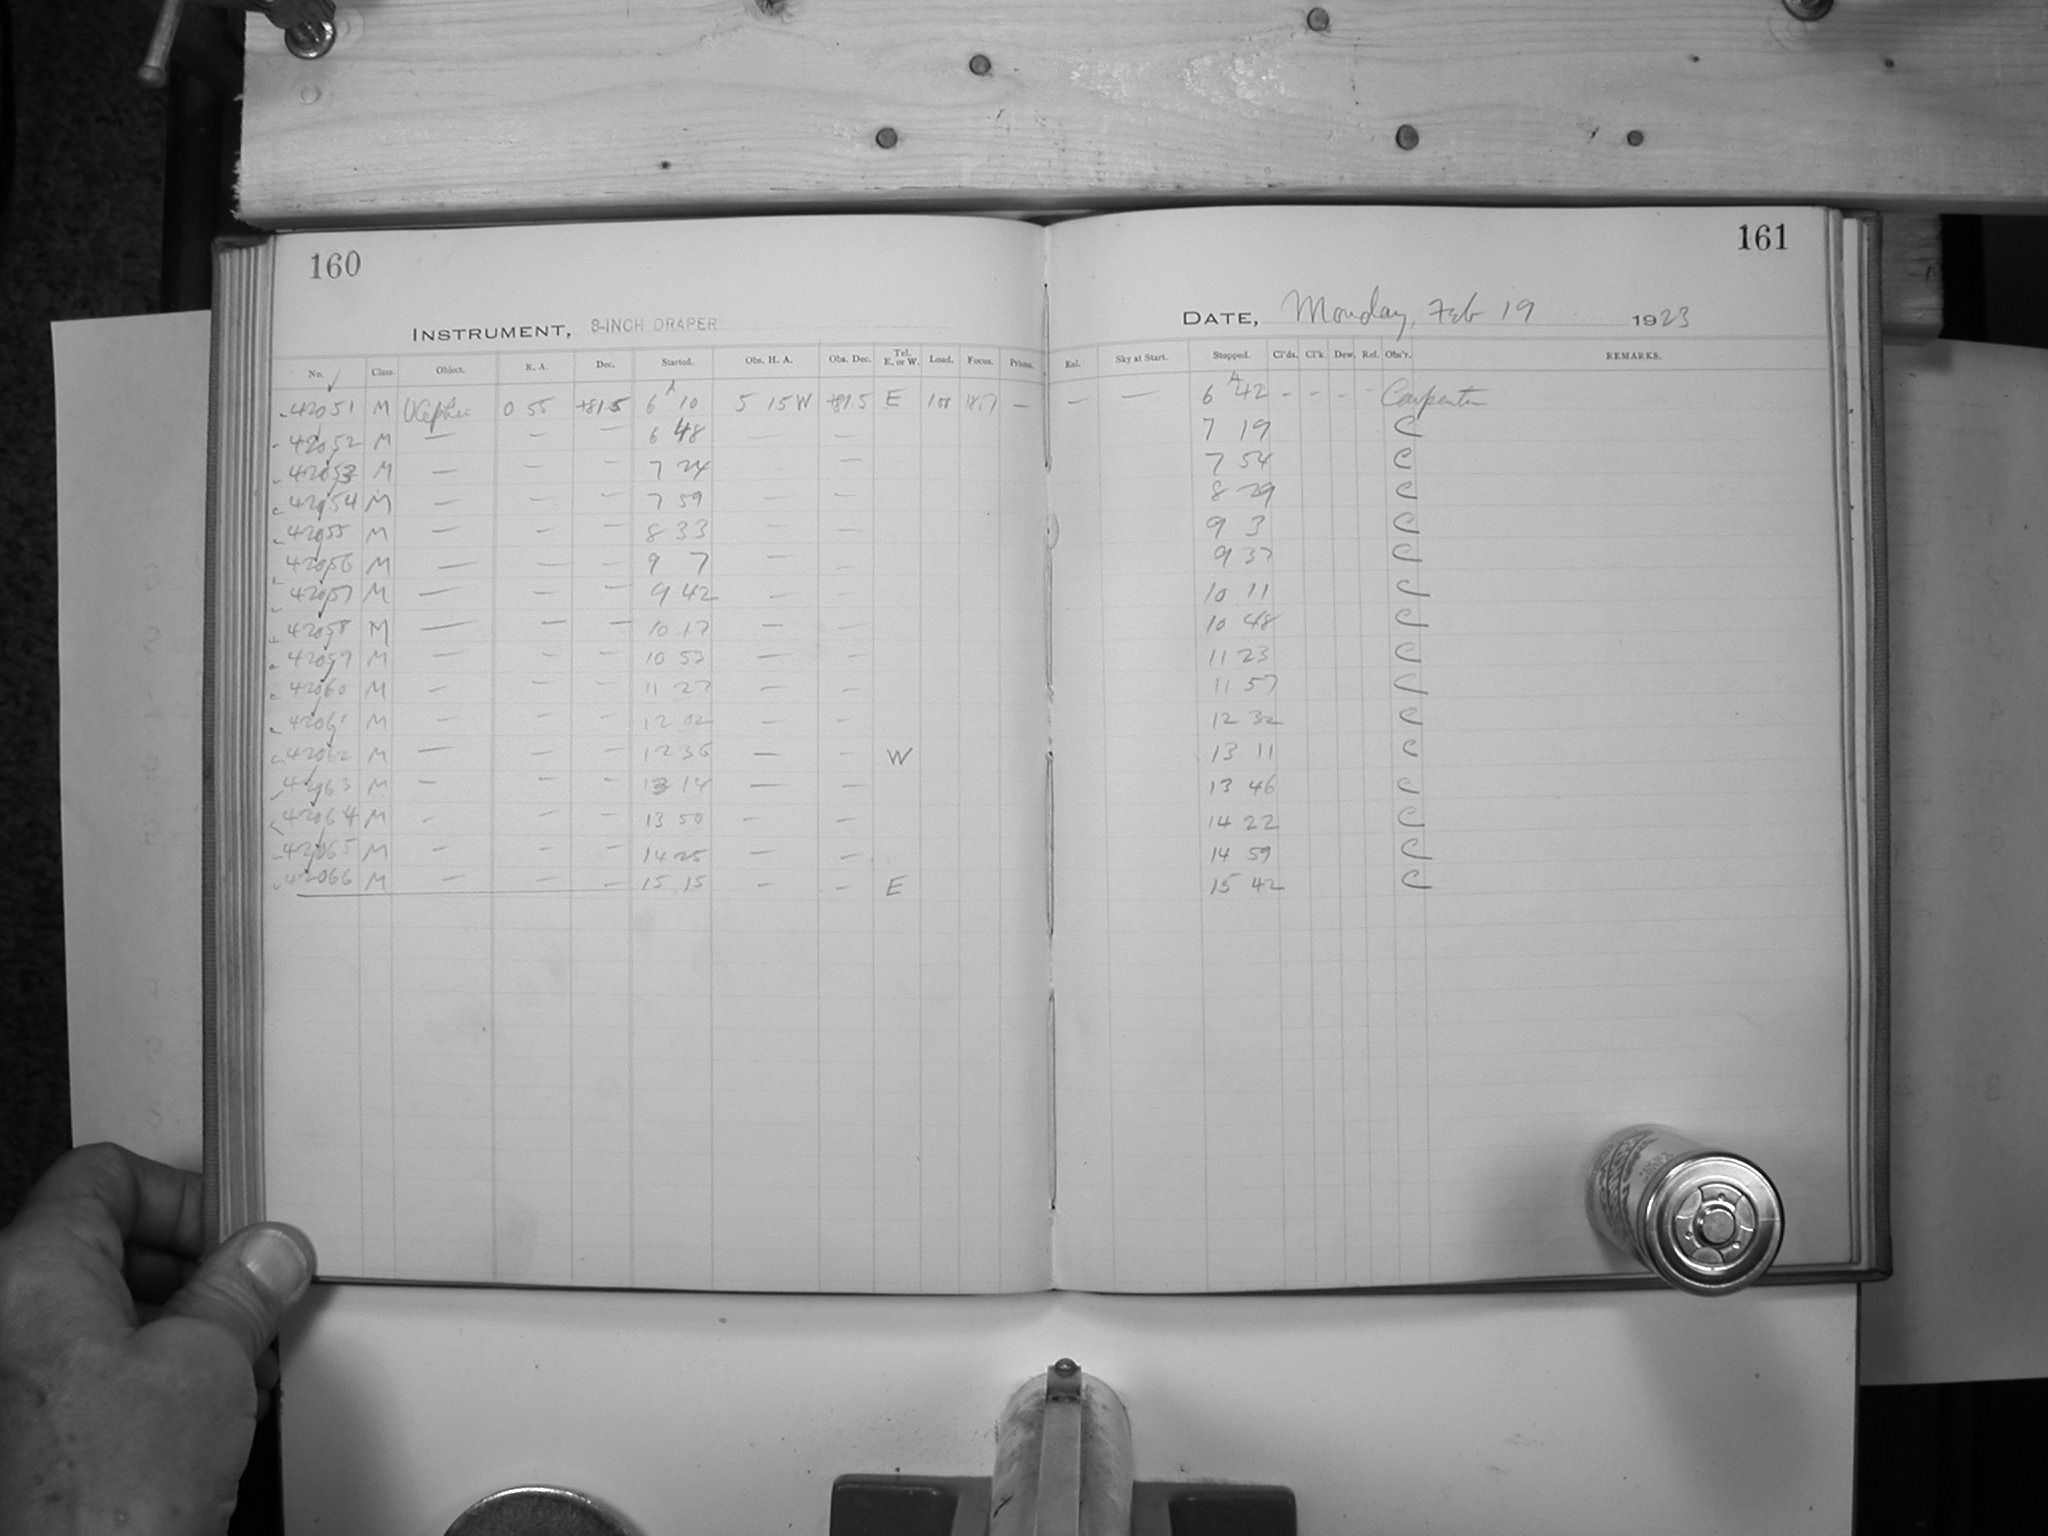 160
INSTRUMENT, 8-INCH DRAPER
No. Class. Object. R. A. Dec. Started. Obs. H. A. Obs. Dec. Tel. E. or W. Load. Focus. Prisms.
42051 M UCephei 0 55 +81.5 6 10 5 15 W +81.5 E —
42052 M — — — 6 48 — —
42053 M — — — 7 24 —
42054 M — — — 7 59 — —
42055 M — — — 8 33 — —
42056 M — — — 9 7 — —
42057 M — — — 9 42 — —
42058 M — — — 10 17 — —
42059 M — — — 10 53 — —
42060 M — — — 11 27 — —
42061 M — — — 12 02 — —
42062 M — — — 12 36 — — W
42063 M — — — 13 14 — —
42064 M — — — 13 50 — —
42065 M — — — 14 25 — —
42066 M — — — 15 15 — — E
161
DATE, Monday, Feb 19 1923
Exl. Sky at Start. Stopped. Cl'ds. Cl'k. Dew. Ref. Obs'r. REMARKS.
— — 6 42 - - - - Carpenter
7 19 C
7 54 C
8 29 C
9 3 C
9 37 C
10 11 C
10 48 C
11 23 C
11 57 C
12 32 C
13 11 C
13 46 C
14 22 C
14 59 C
15 42 C